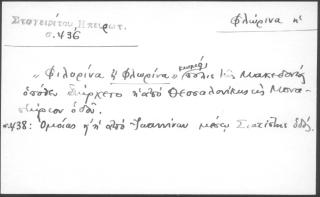 Σταγειρίτου Ηπειρωτ.
σ.436
Φλώρινα ἡ
„Φιλορίνα ἢ Φλωρίνα" κωμό-
πολις τῆς Μακεδονίας
ὁπόθεν διήρχετο ἡ ἀπὸ Θεσσαλονίκης εἰς Μονα-
στήριον ὁδός.
σ.438: Ὁμοίως ἡ ἀπὸ Ἰωαννίνων μέσῳ Σιατίστης ὁδός.